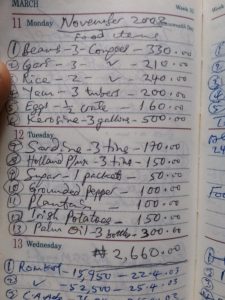 MARCH
11 Monday
November 2003
Food items
① Beans - 3 - Congos - 330.00
② Gari - 3 - ✓ - 210.00
③ Rice - 2 - ✓ - 240.00
④ Yam - 3 tubers - 200.00
⑤ Egg - ½ crate - 160.00
⑥ Kerosine - 3 gallons - 500.00
12 Tuesday
⑦ Sardine - 3 tins - 170.00
⑧ Holland - 3 tins - 150.00
⑨ Sugar - 1 packet - 50.00
⑩ Grounded pepper - 100.00
⑪ Plantain - 100.00
⑫ Irish Potatoes - 150.00
⑬ Palm Oil - 3 bottles - 300.00
13 Wednesday
₦ 2,660.00
① 15,950 - 22.4.03
② ✓ - 52,500 - 25.4.03